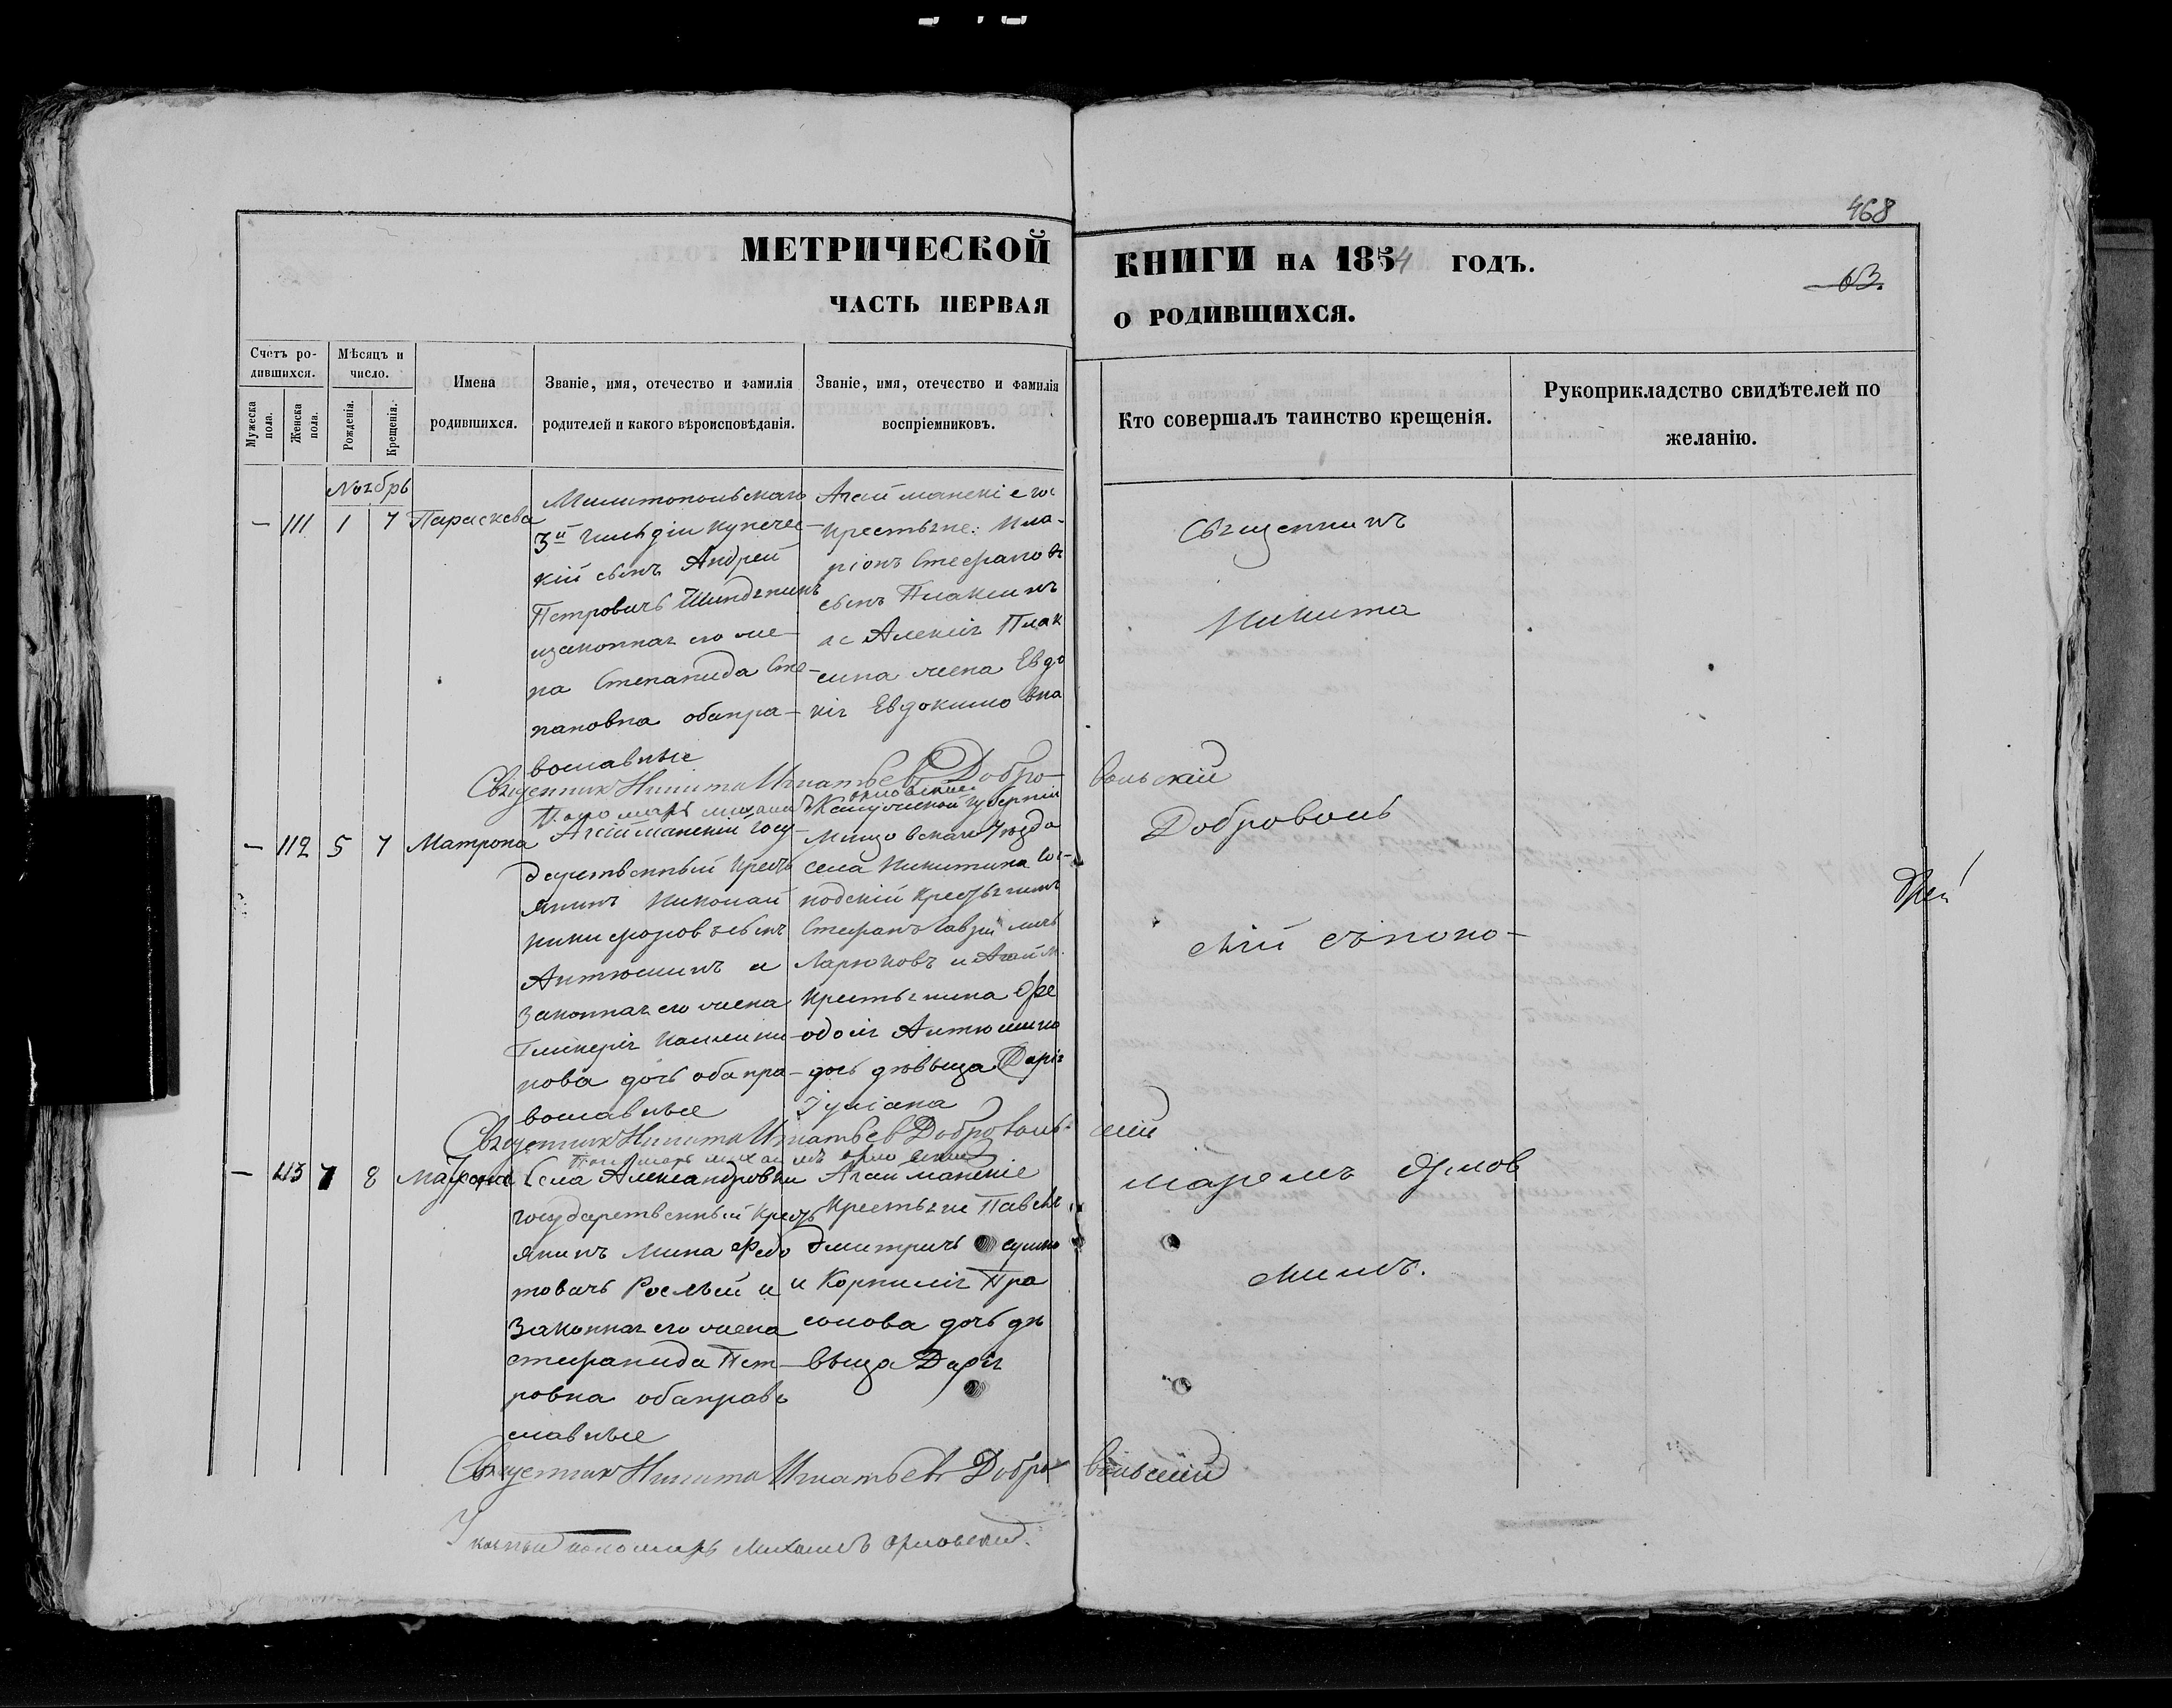 468
МЕТРИЧЕСКОЙ КНИГИ НА 1854 ГОДЪ.
63.
ЧАСТЬ ПЕРВАЯ О РОДИВШИХСЯ.
Счетъ ро-
дившихся.
Мужеска пола.
Женска пола.
Мѣсяцъ и
число.
Рожденія.
Крещенія.
Имена
родившихся.
Званіе, имя, отечество и фамилія
родителей и какого вѣроисповѣданія.
Званіе, имя, отечество и фамилія
воспріемниковъ.
Кто совершалъ таинство крещенія.
Рукоприкладство свидѣтелей по
желанію.
Ноябрь
— 111 1 7 Параскева
Милитопольскаго
3й гильдіи купечес-
кій сынъ Андрей
Петровичъ
изаконная его же-
на Степанида Сте-
пановна обапра-
вославные
Агайманскіе гос
крестьяне: Ила-
ріонъ Стефановъ
сынъ Плаксинъ
Алексія Плак
сина жена Евдо
кія Евдокимовна
Священникъ
Никита
Священник Никита Игнатьев Добро-вольскій
Пономарь Михаилъ Орловский
— 112 5 7 Матрона
Агайманскій госу-
дарственный кресть
янинъ Николай
Никифоровъ сынъ
Антюшинъ и
законная его жена
Гликерія Каллини-
кова дочь обапра-
вославные
Калужской губерніи
Уѣзда
села Никитина гос-
подскій крестьянинъ
Стефанъ Гаврииличъ
Ларюковъ и Агайм.
крестьянина Фе
одосія Антюшина
дочь дѣвица Дарія
Іуліана
Доброволь
скій съ поно-
Священник Никита Игнатьев Добровольскій
Пономарь Михаилъ Орловский
— 113 7 8 Матрона
Села Александровки
государственный кресть
янинъ Мина Федо
товичъ и
законная его жена
стефанида Пет-
ровна обаправо
славные
Агайманскіе
крестьяне Павелъ
Дмитричъ
и Корнилія Пра
солова дочь дѣ
вица Дарія
маремъ Орлов
скимъ.
Священник Никита Игнатьев Добровольскій
пономарь Михаилъ Орловский.